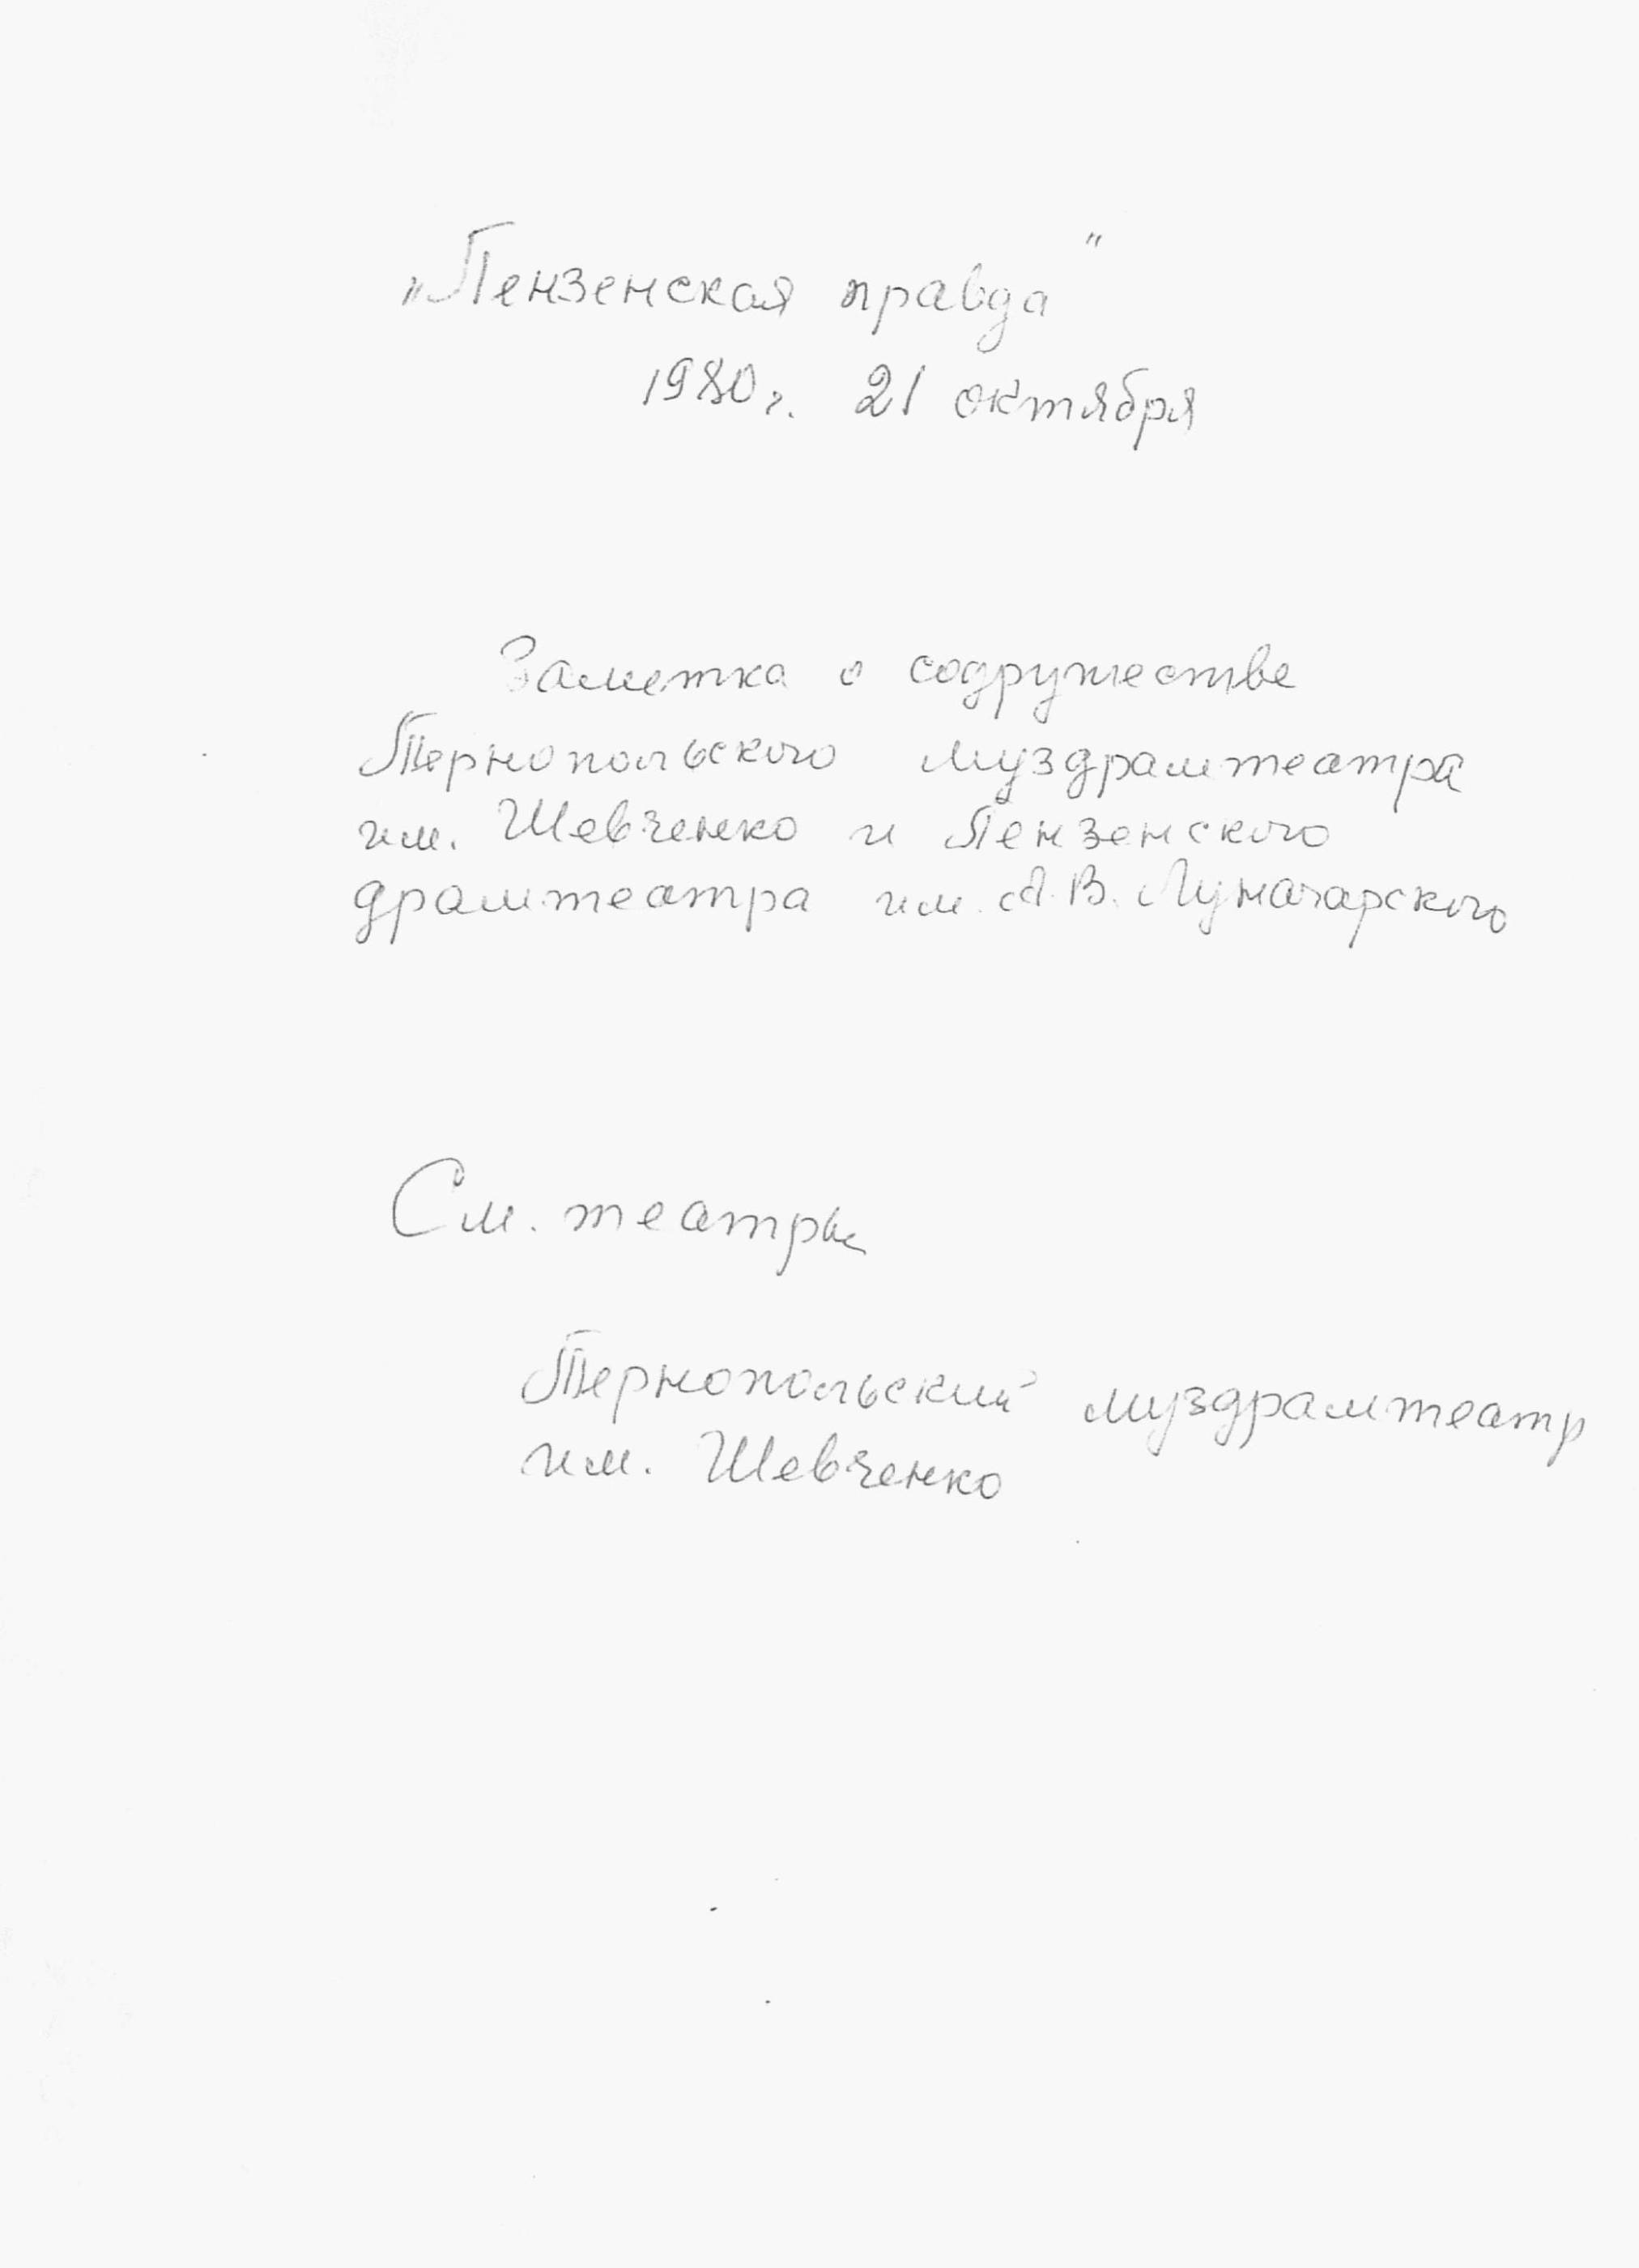 „Пензенская правда"
1980 г. 21 октября
Заметка о содружестве
Тернопольского муздрамтеатра
им. Шевченко и Пензенского
драмтеатра им. А. В. Луначарского
См. театры
Тернопольский муздрамтеатр
им. Шевченко